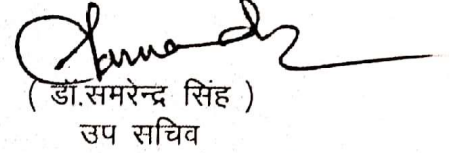 ( डॉ.समरेन्द्र सिंह )
उप सचिव